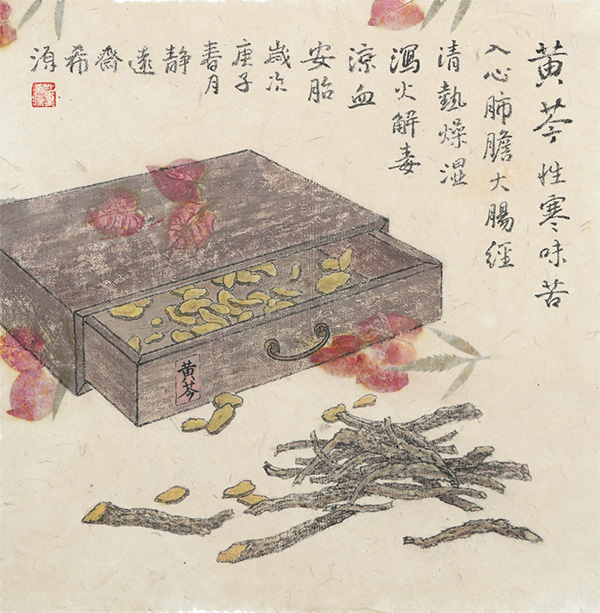 黄芩性寒味苦
入心肺膽大腸經
清熱燥湿
瀉火解毒
涼血
安胎
歲次
庚子
春月
静
遠
齋
希
源
黄芩